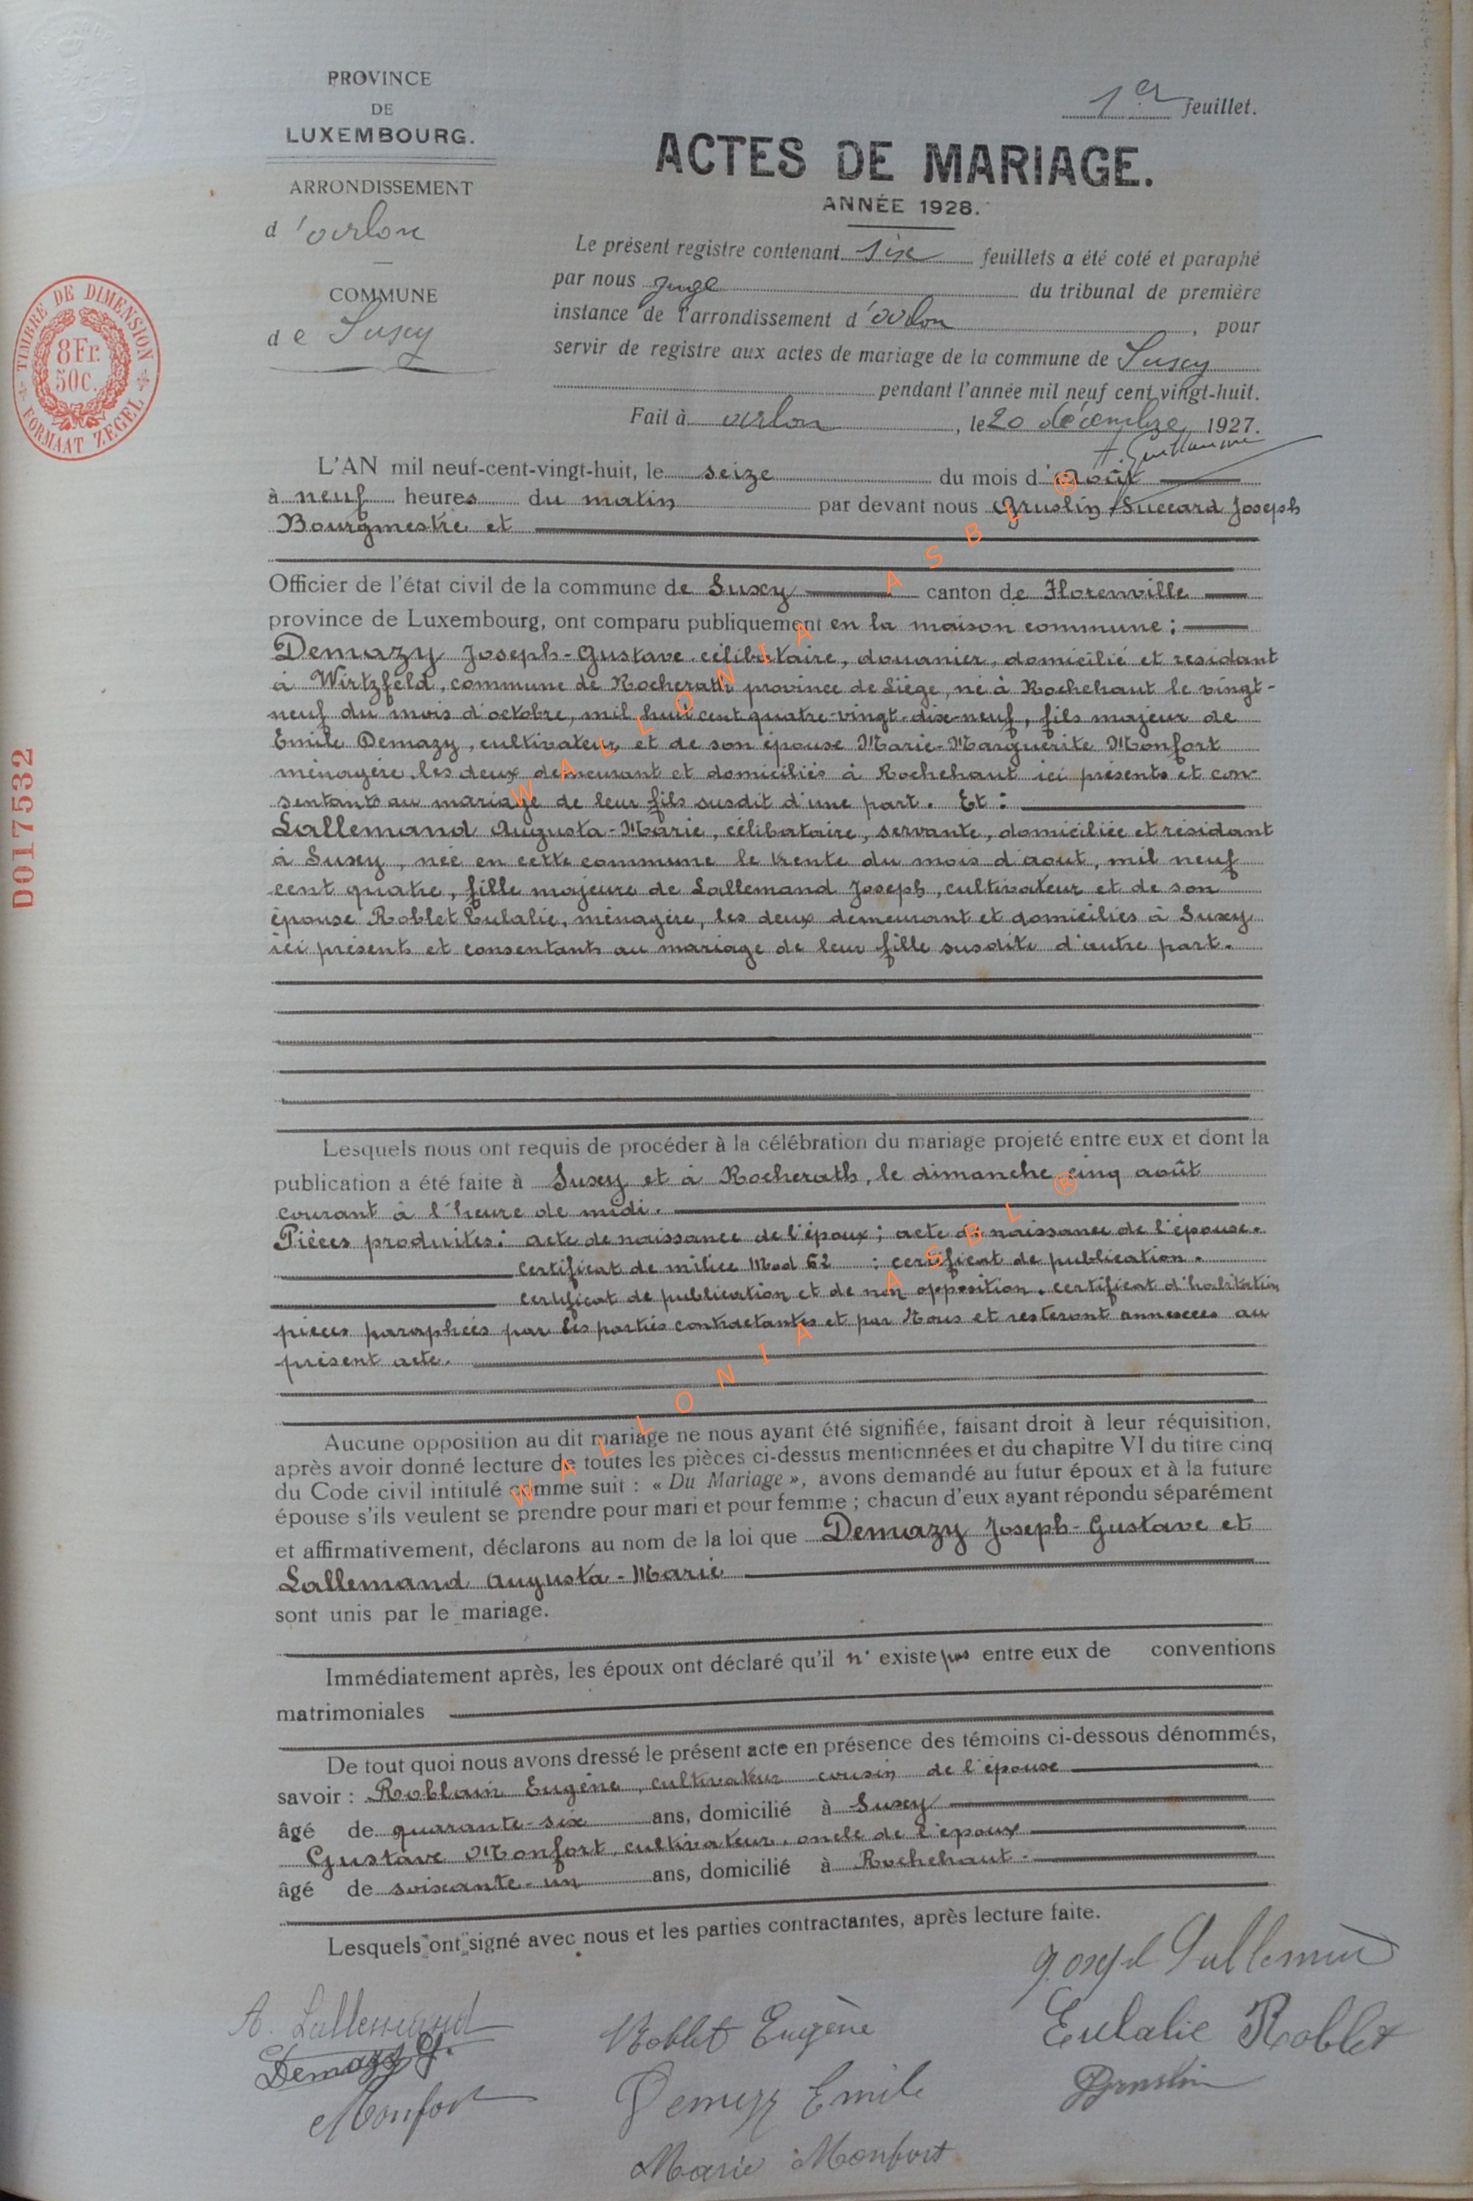 PROVINCE
DE
LUXEMBOURG.
ARRONDISSEMENT
d'Arlon
COMMUNE
de Suxy
1er feuillet.
ACTES DE MARIAGE.
ANNÉE 1928.
Le présent registre contenant six feuillets a été coté et paraphé
par nous juge du tribunal de première
instance de l'arrondissement d'Arlon, pour
servir de registre aux actes de mariage de la commune de Suxy
pendant l'année mil neuf cent vingt-huit.
Fait à Arlon, le 20 décembre 1927.
TIMBRE DE DIMENSION
8Fr.
50C.
FORMAAT ZEGEL
D017532
L'AN mil neuf-cent-vingt-huit, le seize du mois d'Août
à neuf heures du matin par devant nous Gruslin Joseph
Bourgmestre et
Officier de l'état civil de la commune de Suxy canton de Florenville
province de Luxembourg, ont comparu publiquement en la maison commune :
Demazy Joseph-Gustave célibataire, douanier, domicilié et résidant
à Wirtzfeld, commune de Rocherath province de Liège, né à Rochehaut le vingt-
neuf du mois d'octobre, mil huit cent quatre-vingt-dix-neuf, fils majeur de
Emile Demazy, cultivateur et de son épouse Marie-Marguerite Monfort
ménagère, les deux demeurant et domiciliés à Rochehaut ici présents et con-
sentants au mariage de leur fils susdit d'une part. Et :
Lallemand Augusta-Marie, célibataire, servante, domiciliée et résidant
à Suxy, née en cette commune le trente du mois d'août, mil neuf
cent quatre, fille majeure de Lallemand Joseph, cultivateur et de son
épouse Roblet Eulalie, ménagère, les deux demeurant et domiciliés à Suxy
ici présents et consentants au mariage de leur fille susdite d'autre part.
Lesquels nous ont requis de procéder à la célébration du mariage projeté entre eux et dont la
publication a été faite à Suxy et à Rocherath, le dimanche cinq août
courant à l'heure de midi.
Pièces produites : acte de naissance de l'époux ; acte de naissance de l'épouse.
certificat de milice Mod 62 : certificat de publication.
certificat de publication et de non opposition. certificat d'habitation
pièces paraphées par les parties contractantes et par Nous et resteront annexées au
présent acte.
Aucune opposition au dit mariage ne nous ayant été signifiée, faisant droit à leur réquisition,
après avoir donné lecture de toutes les pièces ci-dessus mentionnées et du chapitre VI du titre cinq
du Code civil intitulé comme suit : « Du Mariage », avons demandé au futur époux et à la future
épouse s'ils veulent se prendre pour mari et pour femme ; chacun d'eux ayant répondu séparément
et affirmativement, déclarons au nom de la loi que Demazy Joseph-Gustave et
Lallemand Augusta-Marie
sont unis par le mariage.
Immédiatement après, les époux ont déclaré qu'il n'existe pas entre eux de conventions
matrimoniales
De tout quoi nous avons dressé le présent acte en présence des témoins ci-dessous dénommés,
savoir : Eugène, cultivateur cousin de l'épouse
âgé de quarante-six ans, domicilié à Suxy
Gustave Monfort, cultivateur, oncle de l'époux
âgé de soixante-un ans, domicilié à Rochehaut.
Lesquels ont signé avec nous et les parties contractantes, après lecture faite.
Joseph Lallemand
A. Lallemand
Roblet Eugène
Eulalie Roblet
Demazy G.
Monfort
Demazy Emile
Gruslin
Marie Monfort
WALLONIA ASBL ®
WALLONIA ASBL ®